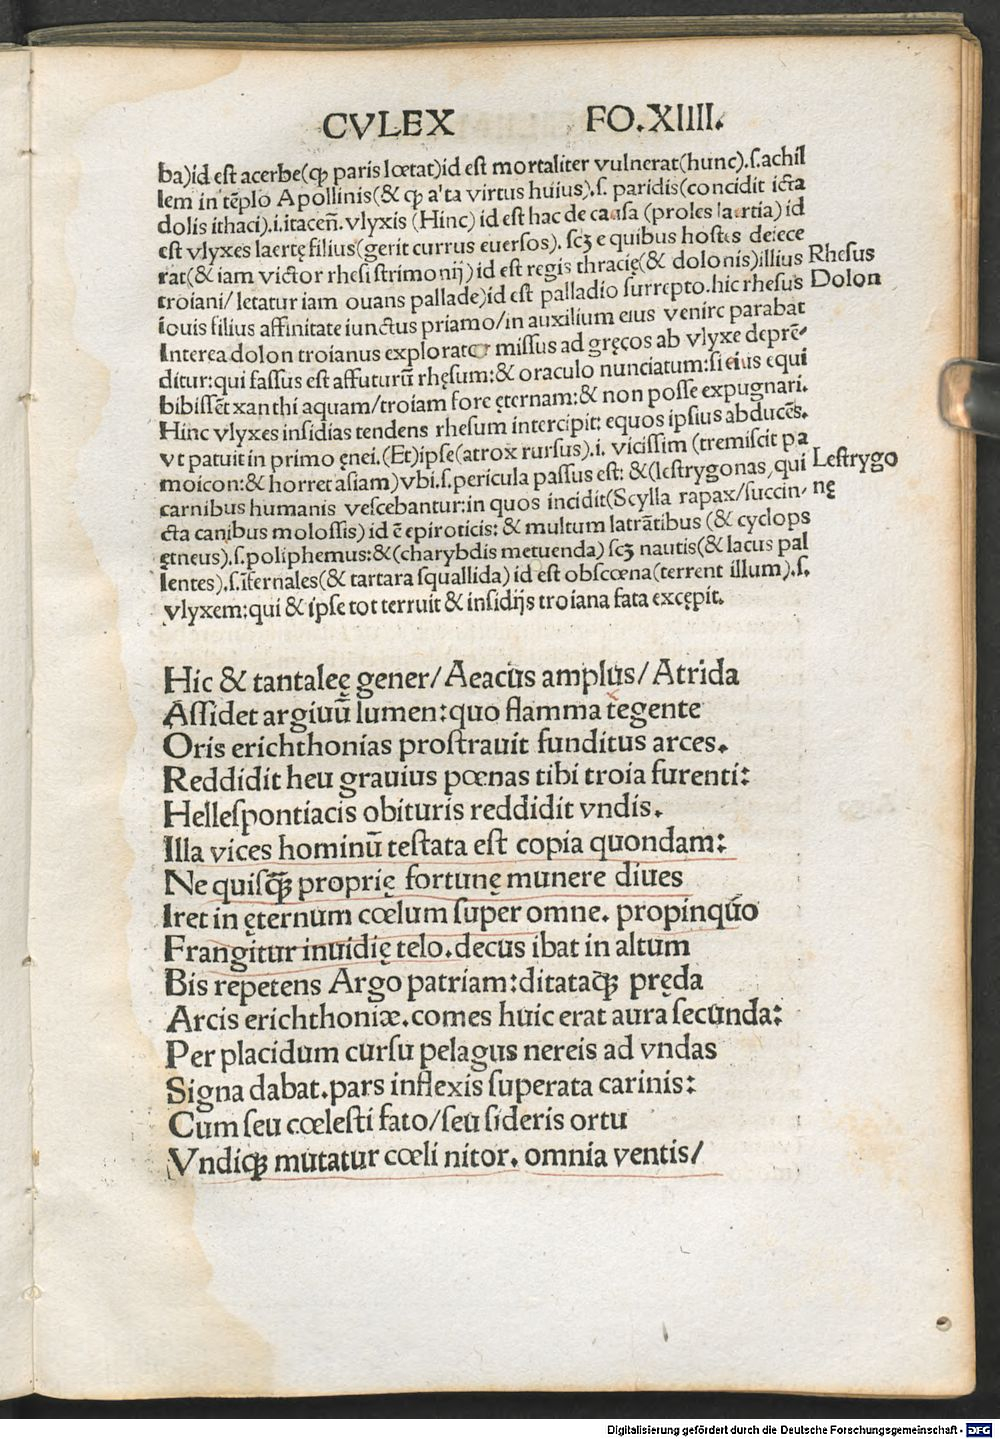 CVLEX FO.XIIII.
ba)id est acerbe(ꝙ paris lœtat)id est mortaliter vulnerat(hunc).ſ.achil
lem in tẽplo Apollinis(& ꝙ a'ta virtus huius).ſ. paridis(concidit icta
dolis ithaci).i.itaceñ.vlyxis (Hinc) id est hac de causa (proles laertia) id
est vlyxes laertę filius(gerit currus euersos). scʒ e quibus hostes deiece
rat(& iam victor rhesi strimonij) id est regis thracię(& dolonis)illius Rhesus
troiani/ letatur iam ouans pallade)id est palladio surrepto.hic rhesus Dolon
iouis filius affinitate iunctus priamo/in auxilium eius venire parabat
Interea dolon troianus explorator missus ad gręcos ab vlyxe deprẽ-
ditur:qui fassus est affuturũ rhęsum:& oraculo nunciatum:si eius equi
bibissẽt xanthi aquam/troiam fore ęternam:& non posse expugnari.
Hinc vlyxes insidias tendens rhesum intercipit: equos ipsius abducẽs.
vt patuit in primo ęnei.(Et)ipse(atrox rursus).i. vicissim (tremiscit pa
moicon:& horret asiam)vbi.ſ.pericula passus est: &(lestrygonas, qui Lestrygo
carnibus humanis vescebantur:in quos incidit(Scylla rapax/succin- nę
cta canibus molossis) id ẽ epiroticis: & multum latrãtibus (& cyclops
ętneus).ſ.poliphemus:&(charybdis metuenda) scʒ nautis(& lacus pal
lentes).ſ.ĩfernales(& tartara squallida) id est obscœna(terrent illum).ſ.
vlyxem:qui & ipse tot terruit & insidijs troiana fata excępit.
Hic & tantaleę gener/Aeacus amplus/Atrida
Assidet argiuũ lumen:quo flamma tegente
Oris erichthonias prostrauit funditus arces.
Reddidit heu grauius pœnas tibi troia furenti:
Hellespontiacis obituris reddidit vndis.
Illa vices hominũ testata est copia quondam:
Ne quisꝗ̃ʒ proprię fortunę munere diues
Iret in ęternum cœlum super omne. propinquo
Frangitur inuidię telo.decus ibat in altum
Bis repetens Argo patriam:ditataqʒ pręda
Arcis erichthoniæ.comes huic erat aura secunda:
Per placidum cursu pelagus nereis ad vndas
Signa dabat.pars inflexis superata carinis:
Cum seu cœlesti fato/seu sideris ortu
Vndiqʒ mutatur cœli nitor. omnia ventis/
Digitalisierung gefördert durch die Deutsche Forschungsgemeinschaft - DFG